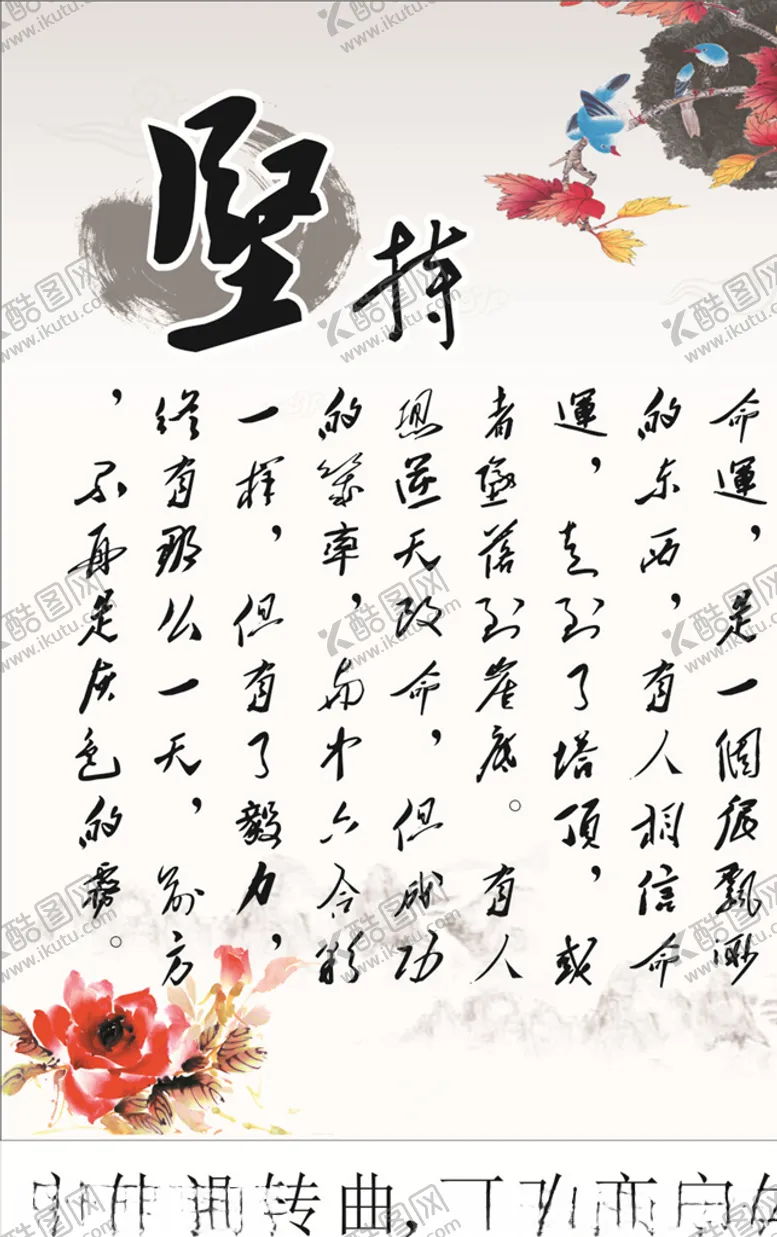 坚持
命運,是一個很飄渺
的东西,有人相信命
運,走到了塔頂,或
者墜落到崖底。有人
想逆天改命,但成功
的率,与中六合彩
一样,但有了毅力,
终有那么一天,前方
,不再是灰色的雾。
转曲,
酷图网
www.ikutu.com